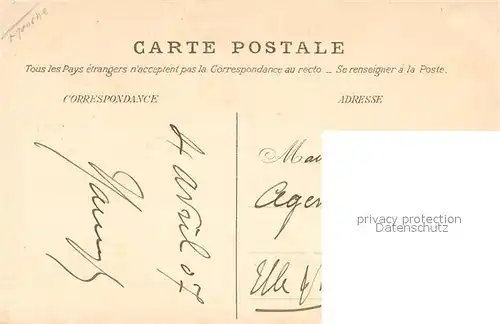 CARTE POSTALE
Tous les Pays étrangers n'acceptent pas la Correspondance au recto _ Se renseigner à la Poste.
CORRESPONDANCE
ADRESSE
4 avril 07
Agen
privacy protection
Datenschutz